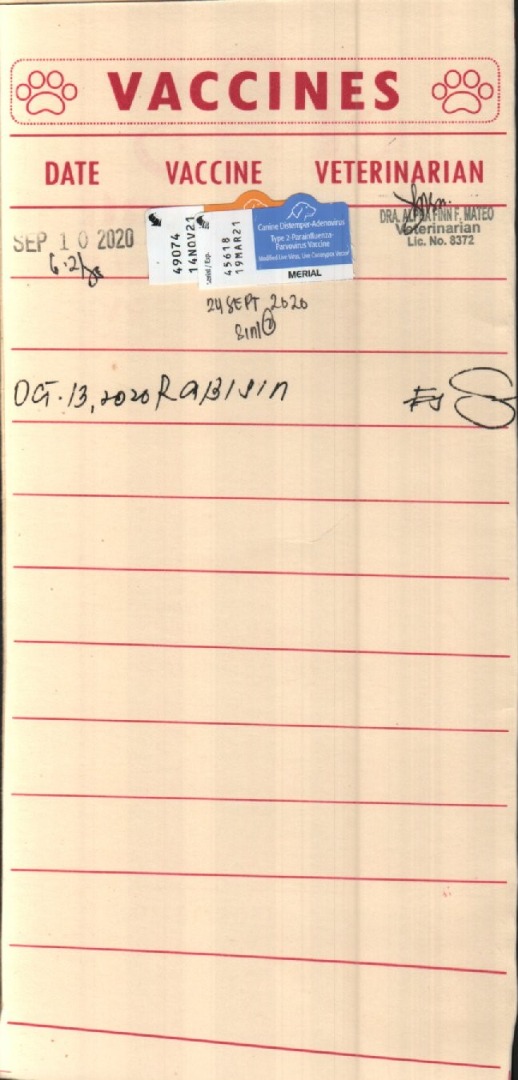 VACCINES
DATE VACCINE VETERINARIAN
SEP 10 2020
49074
14NOV21
Serial / Exp.
45618
19MAR21
Canine Distemper-Adenovirus
Type 2-Parainfluenza-
Parvovirus Vaccine
Modified Live Virus, Live Canarypox Vector
MERIAL
DRA. ALPHA FINN F. MATEO
Veterinarian
Lic. No. 8372
24 SEPT 2020
8in1
OCT. 13, 2020 Rabisin